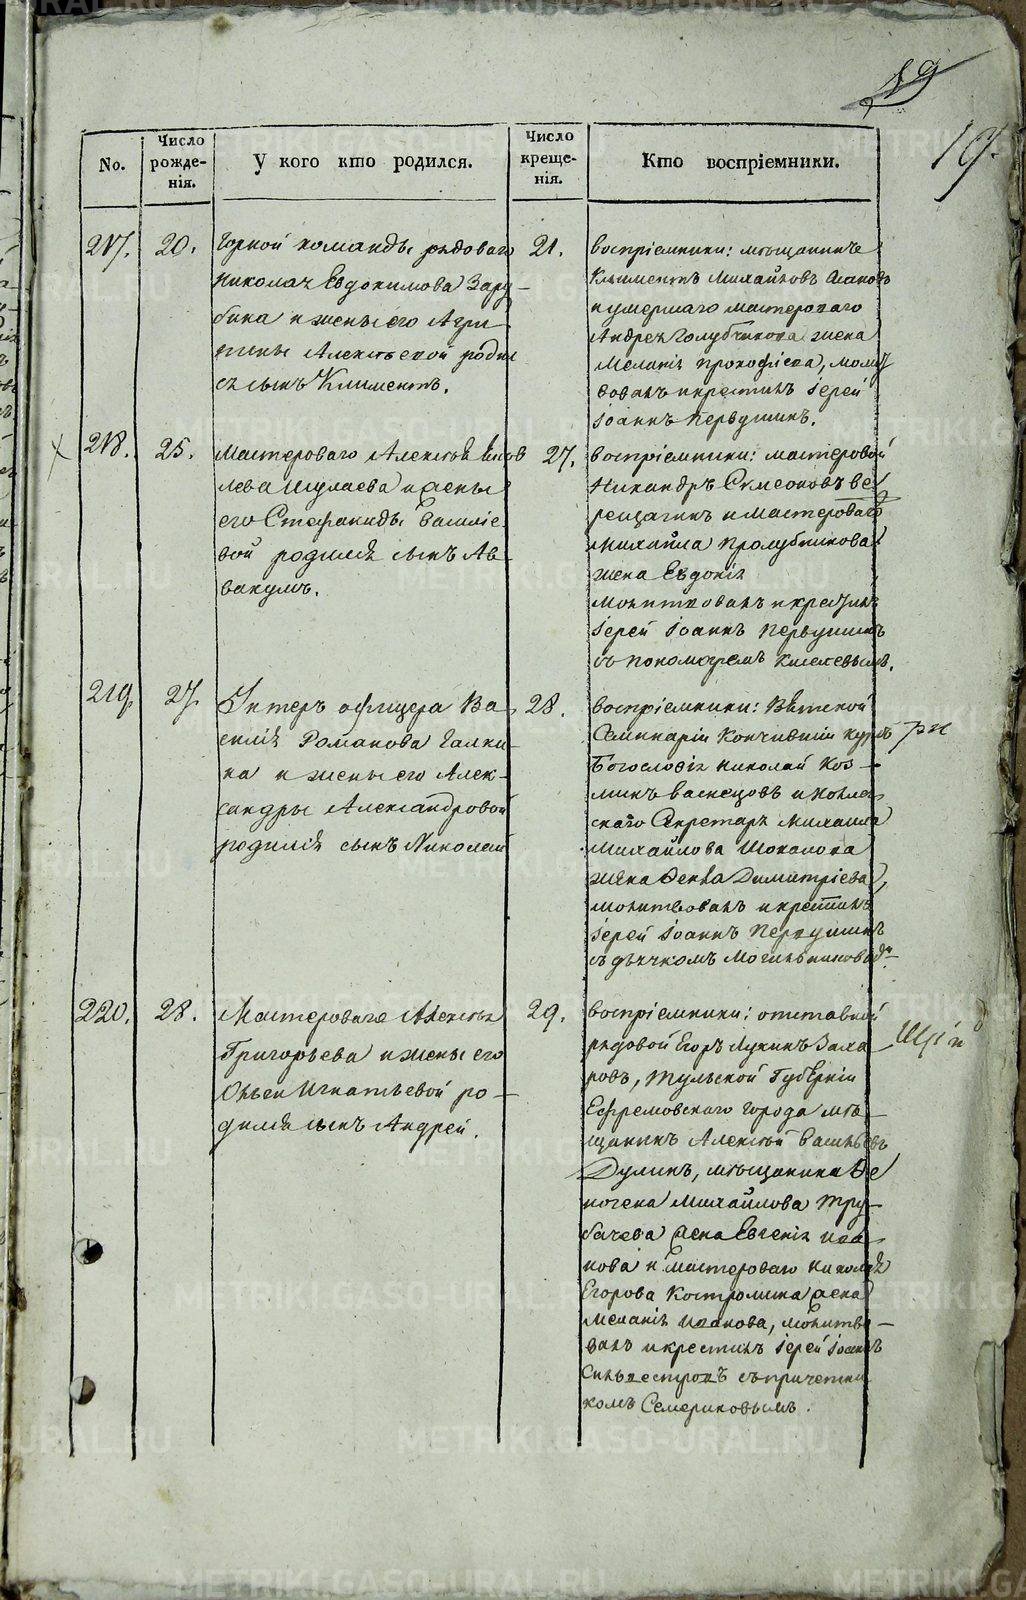 19
19.
No.
Число рожде-нія.
У кого кто родился.
Число креще-нія.
Кто воспріемники.
217.
20.
Горной команды рядоваго
Николая Евдокимова Зару-
бина и жены его Агри-
пины Алексѣевой родил
ся сынъ Климентъ.
21.
Воспріемники: мѣщанинъ
Климентъ Михайловъ
и умершаго мастероваго
Андрея Голубчикова жена
Меланія Прокофіева, молит
вовалъ и крестилъ Іерей
Іоаннъ Первушинъ.
218.
25.
Мастероваго Алексѣя
Шулаева и жены
его Степаниды Василіе-
вой родился сынъ Ав-
вакумъ.
27.
Воспріемники: мастеровой
Никандръ Симеоновъ Ве-
рещагинъ и мастероваго
Михаила Пролубникова
жена Евдокія
Молитвовалъ и крестилъ
Іерей Іоаннъ Первушинъ
съ пономаремъ Киселевымъ.
219.
27.
Унтеръ офицера Ва-
силія Романова Галки-
на и жены его Алек-
сандры Александровой
родился сынъ Николай
28.
Воспріемники: Вятской
Семинаріи Кончившій курсъ
Богословія Николай Коз-
минъ Васнецовъ и Коллеж-
скаго Секретаря Михаила
Михайлова Шокалова
жена Фекла Димитріева,
молитвовалъ и крестилъ
Іерей Іоаннъ Первушинъ
съ дьячкомъ Могильниковы
220.
28.
Мастероваго Алексѣя
Григорьева и жены его
Ольги Игнатьевой ро-
дился сынъ Андрей.
29.
Воспріемники: отставной
рядовой Егоръ Лукинъ Заха
ровъ, Тульской Губерніи
Ефремовскаго города мѣ-
щанинъ Алексѣй Васильевъ
Дулинъ, мѣщанина
Михайлова Тру-
бачева жена Евгенія Ива
нова и мастероваго Николая
Егорова Костромина жена
Меланія Иванова, молитво-
валъ и крестилъ Іерей Іоаннъ
Сильвестровъ съ причетни
комъ Семериковымъ.
METRIKI.GASO-URAL.RU